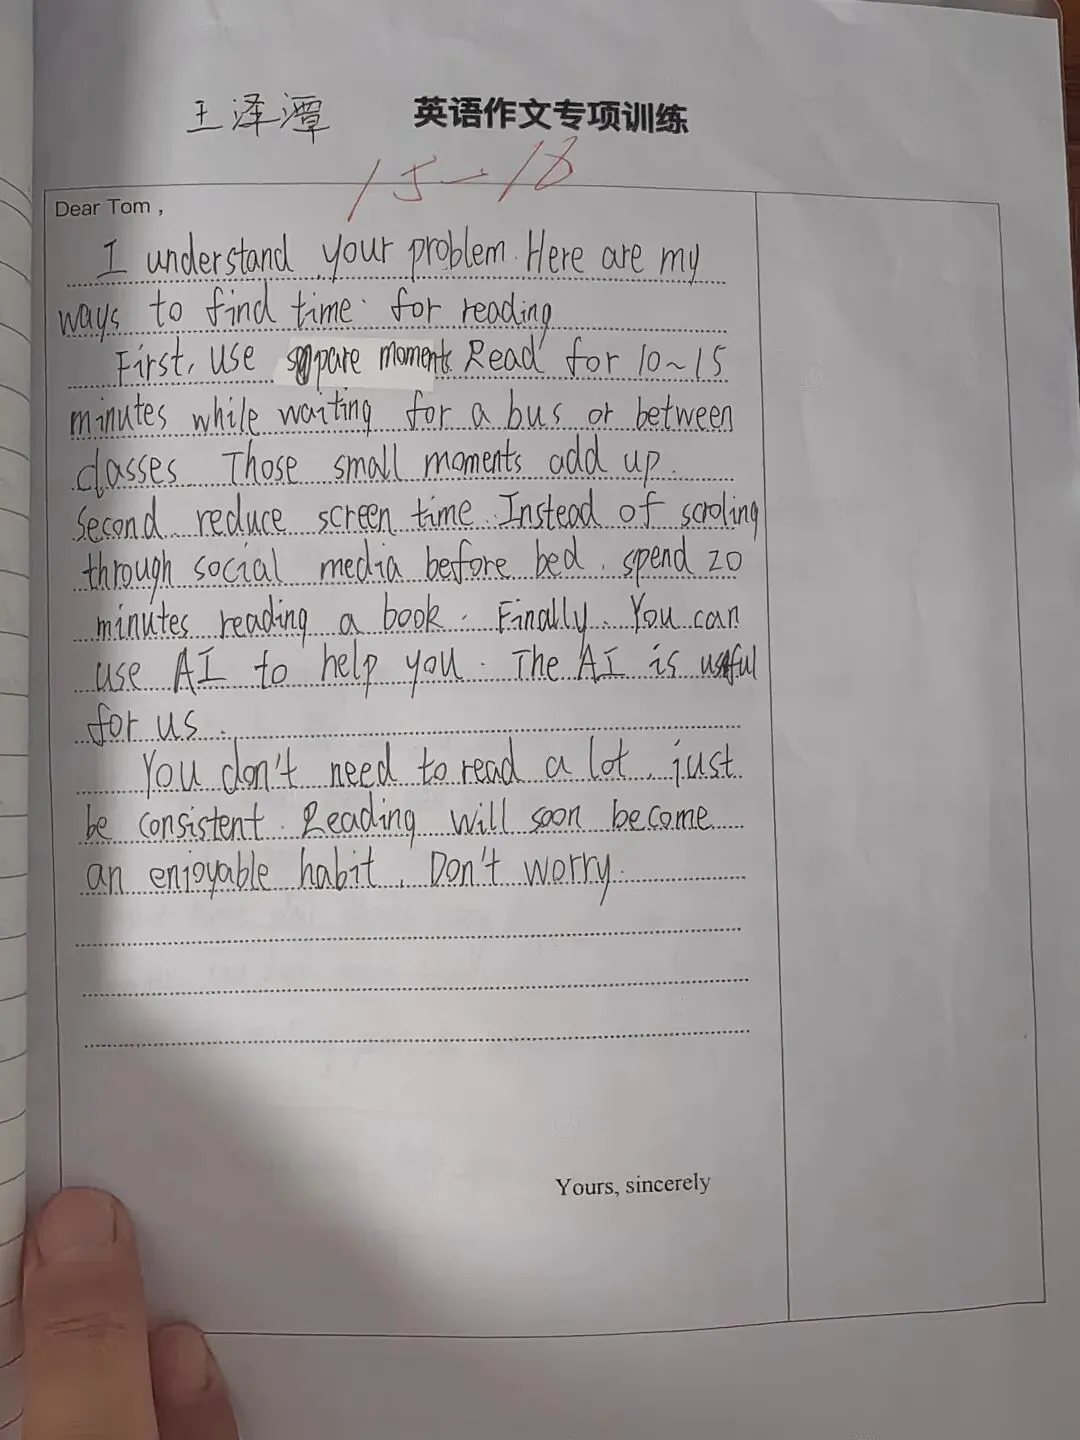 王泽潭 英语作文专项训练
15-18
Dear Tom,
I understand your problem. Here are my
ways to find time for reading
First, use spare moments. Read for 10~15
minutes while waiting for a bus or between
classes. Those small moments add up.
Second, reduce screen time. Instead of scroling
through social media before bed, spend 20
minutes reading a book. Finally, You can
use AI to help you. The AI is useful
for us.
You don't need to read a lot, just
be consistent. Reading will soon become
an enjoyable habit. Don't worry.
Yours, sincerely